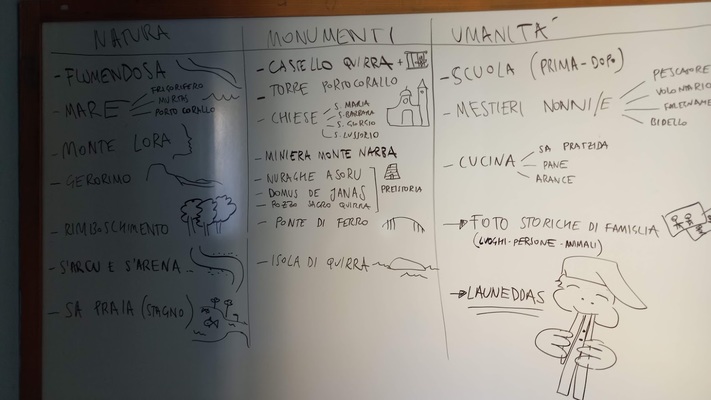 NATURA
- FLUMENDOSA
- MARE
FRIGORIFERO
MURTAS
PORTO CORALLO
- MONTE LORA
- GERORIMO
- RIMBOSCHIMENTO
- S'ARCU E S'ARENA
- SA PRAIA (STAGNO)
MONUMENTI
- CASTELLO QUIRRA +
- TORRE PORTO CORALLO
- CHIESE
S. MARIA
S. BARBARA
S. GIORGIO
S. LUSSORIO
- MINIERA MONTE NARBA
- NURAGHE ASORU
- DOMUS DE JANAS
- POZZO SACRO QUIRRA
PREISTORIA
- PONTE DI FERRO
- ISOLA DI QUIRRA
UMANITA'
- SCUOLA (PRIMA-DOPO)
- MESTIERI NONNI/E
PESCATORE
VOLONTARIO
FALEGNAME
BIDELLO
- CUCINA
SA PRATZIDA
PANE
ARANCE
FOTO STORICHE DI FAMIGLIA
(LUOGHI-PERSONE-ANIMALI)
LAUNEDDAS